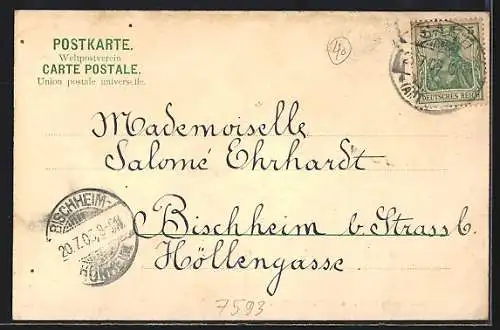 POSTKARTE.
Weltpostverein
CARTE POSTALE.
Union postale universelle.
DEUTSCHES REICH
Mademoiselle
Salomé Ehrhardt
Bischheim b. Strassb.
Höllengasse
BISCHHEIM-
20.7.0
7593